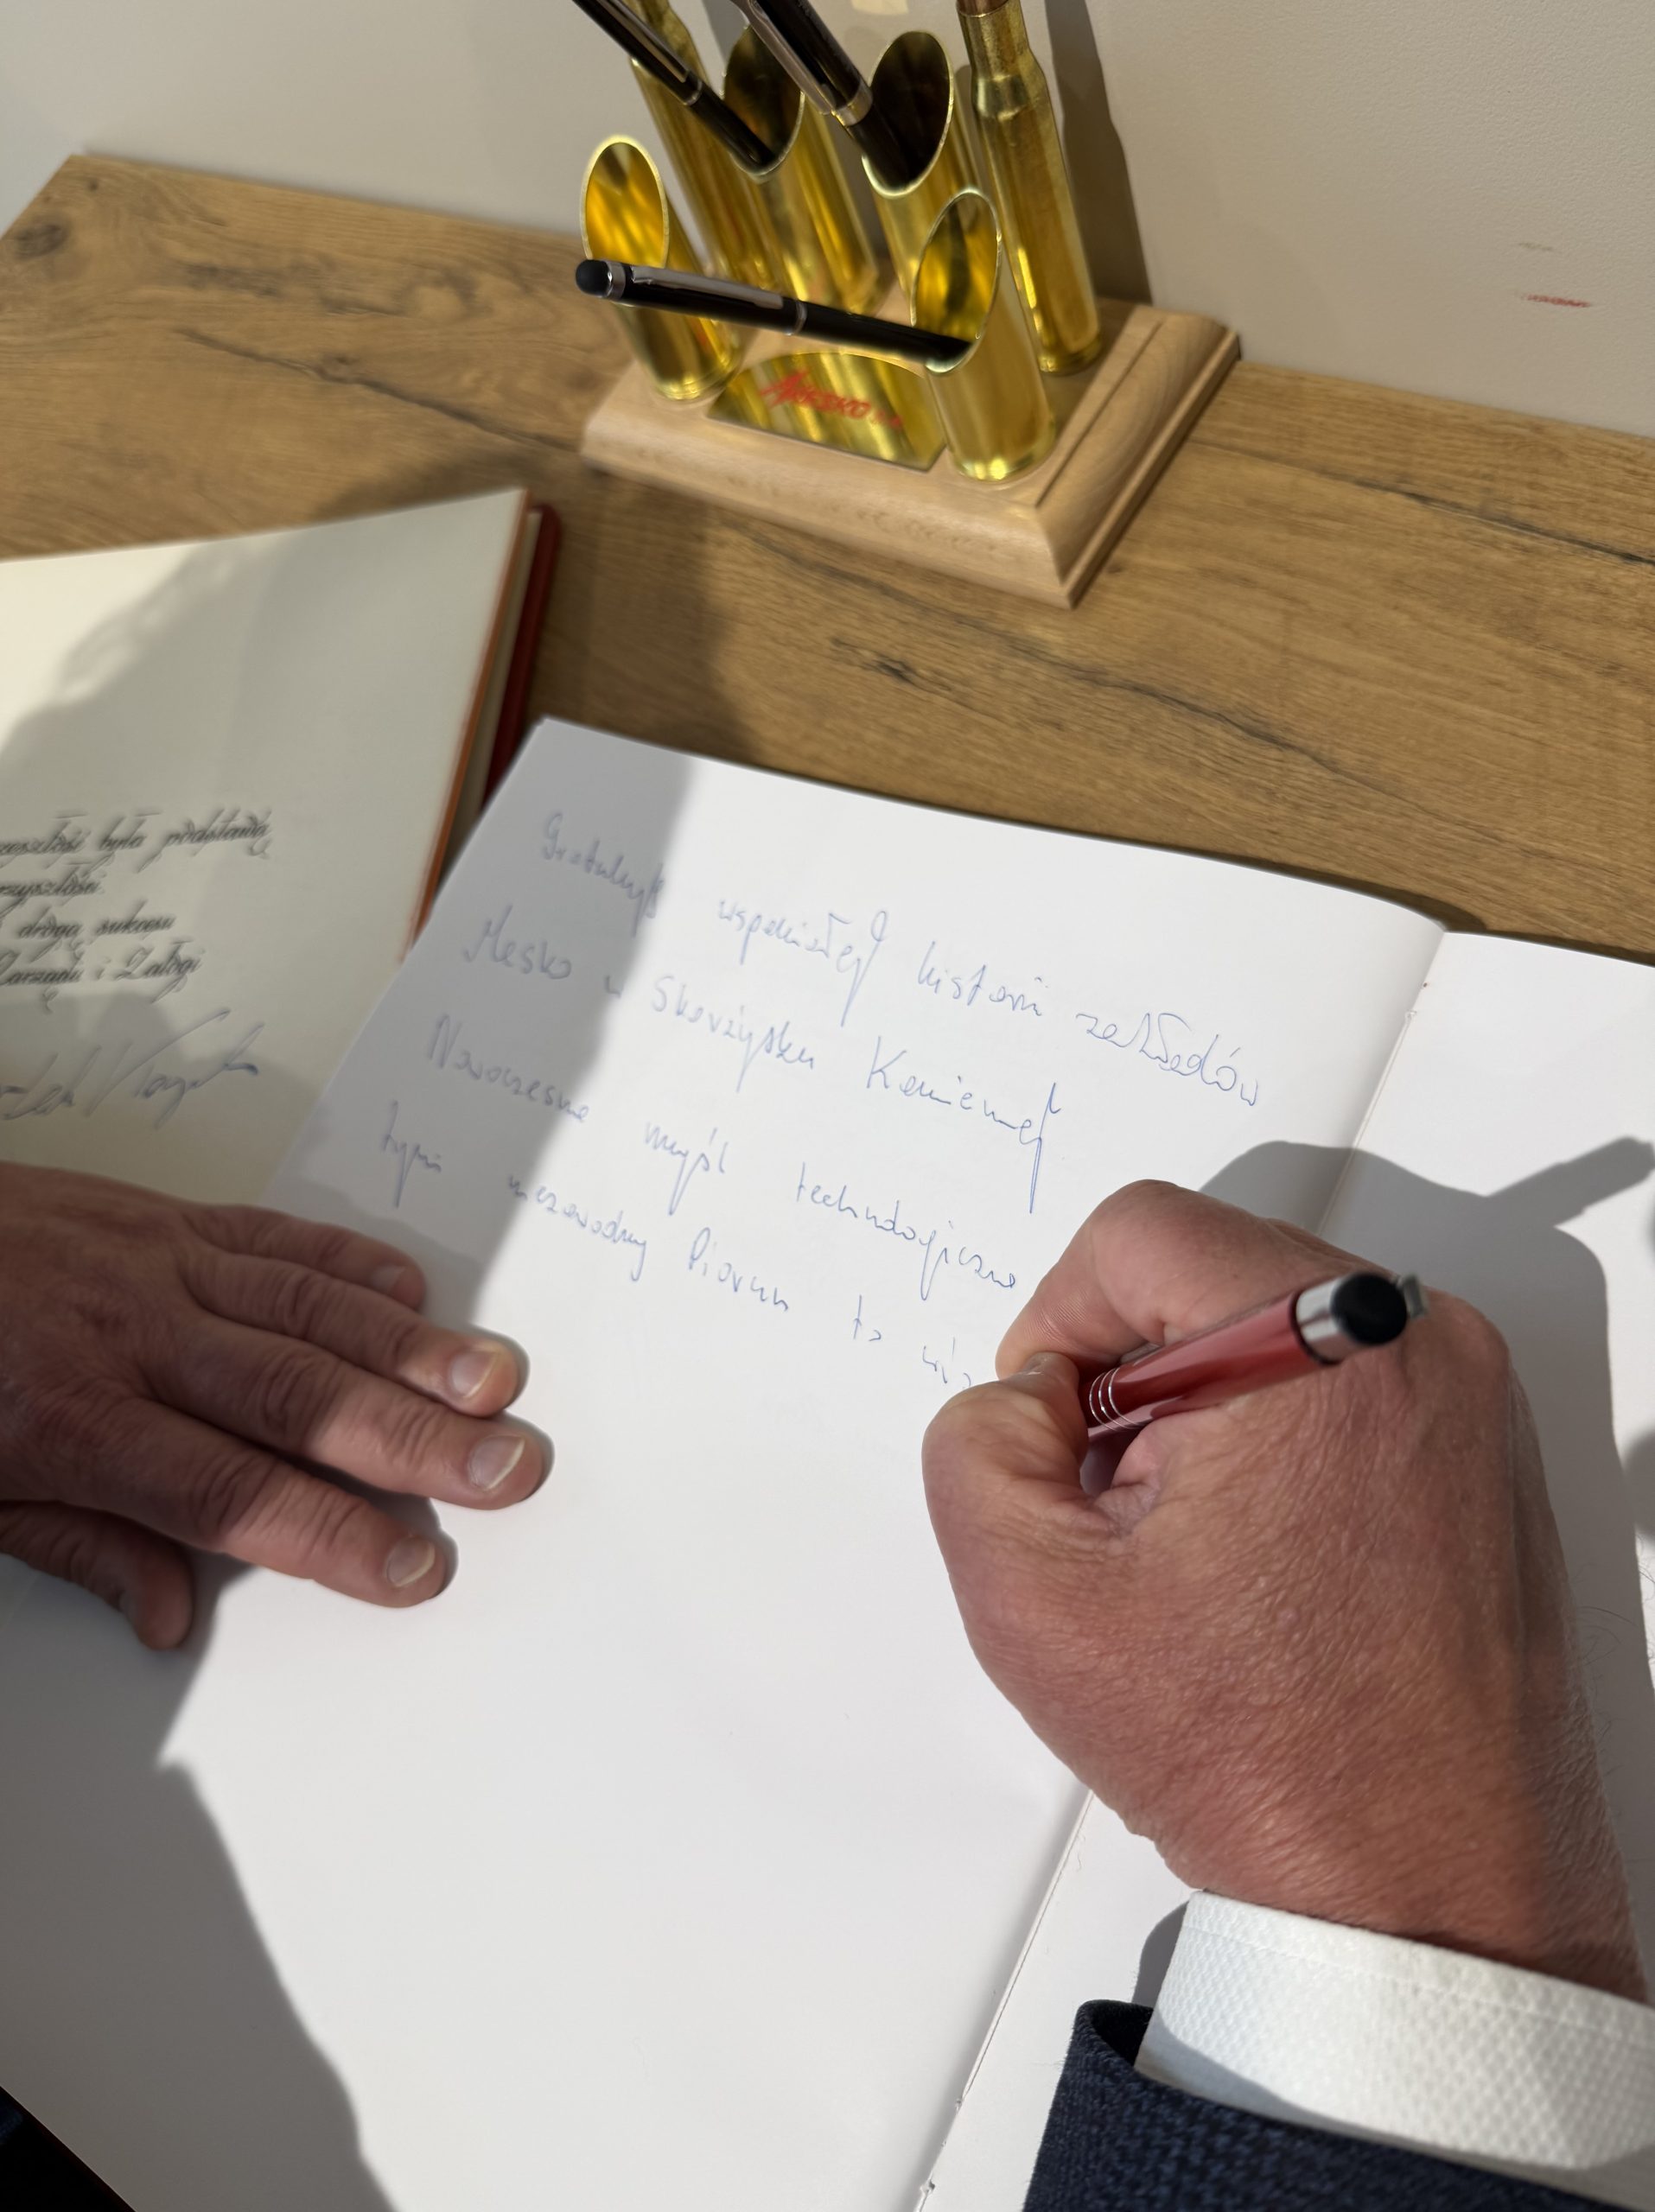 MESKO S.A.
była podstawą
drogą sukcesu
Zarządu i Załogi
Gratuluję wspaniałej historii zakładów
Mesko w Skarżysku Kamiennej
Nowoczesna myśl technologiczna
tym niezawodny Piorun to